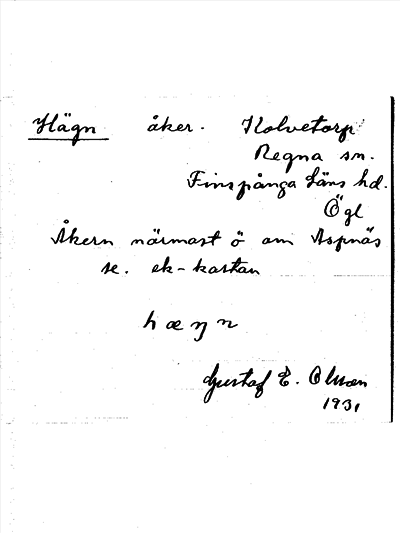 Hägn åker. Kolvetorp
Regna sn.
Finspånga läns hd.
Ögl
Åkern närmast ö om Aspnäs
se. ek-kartan
hæŋn
Gustaf E. Olson
1931